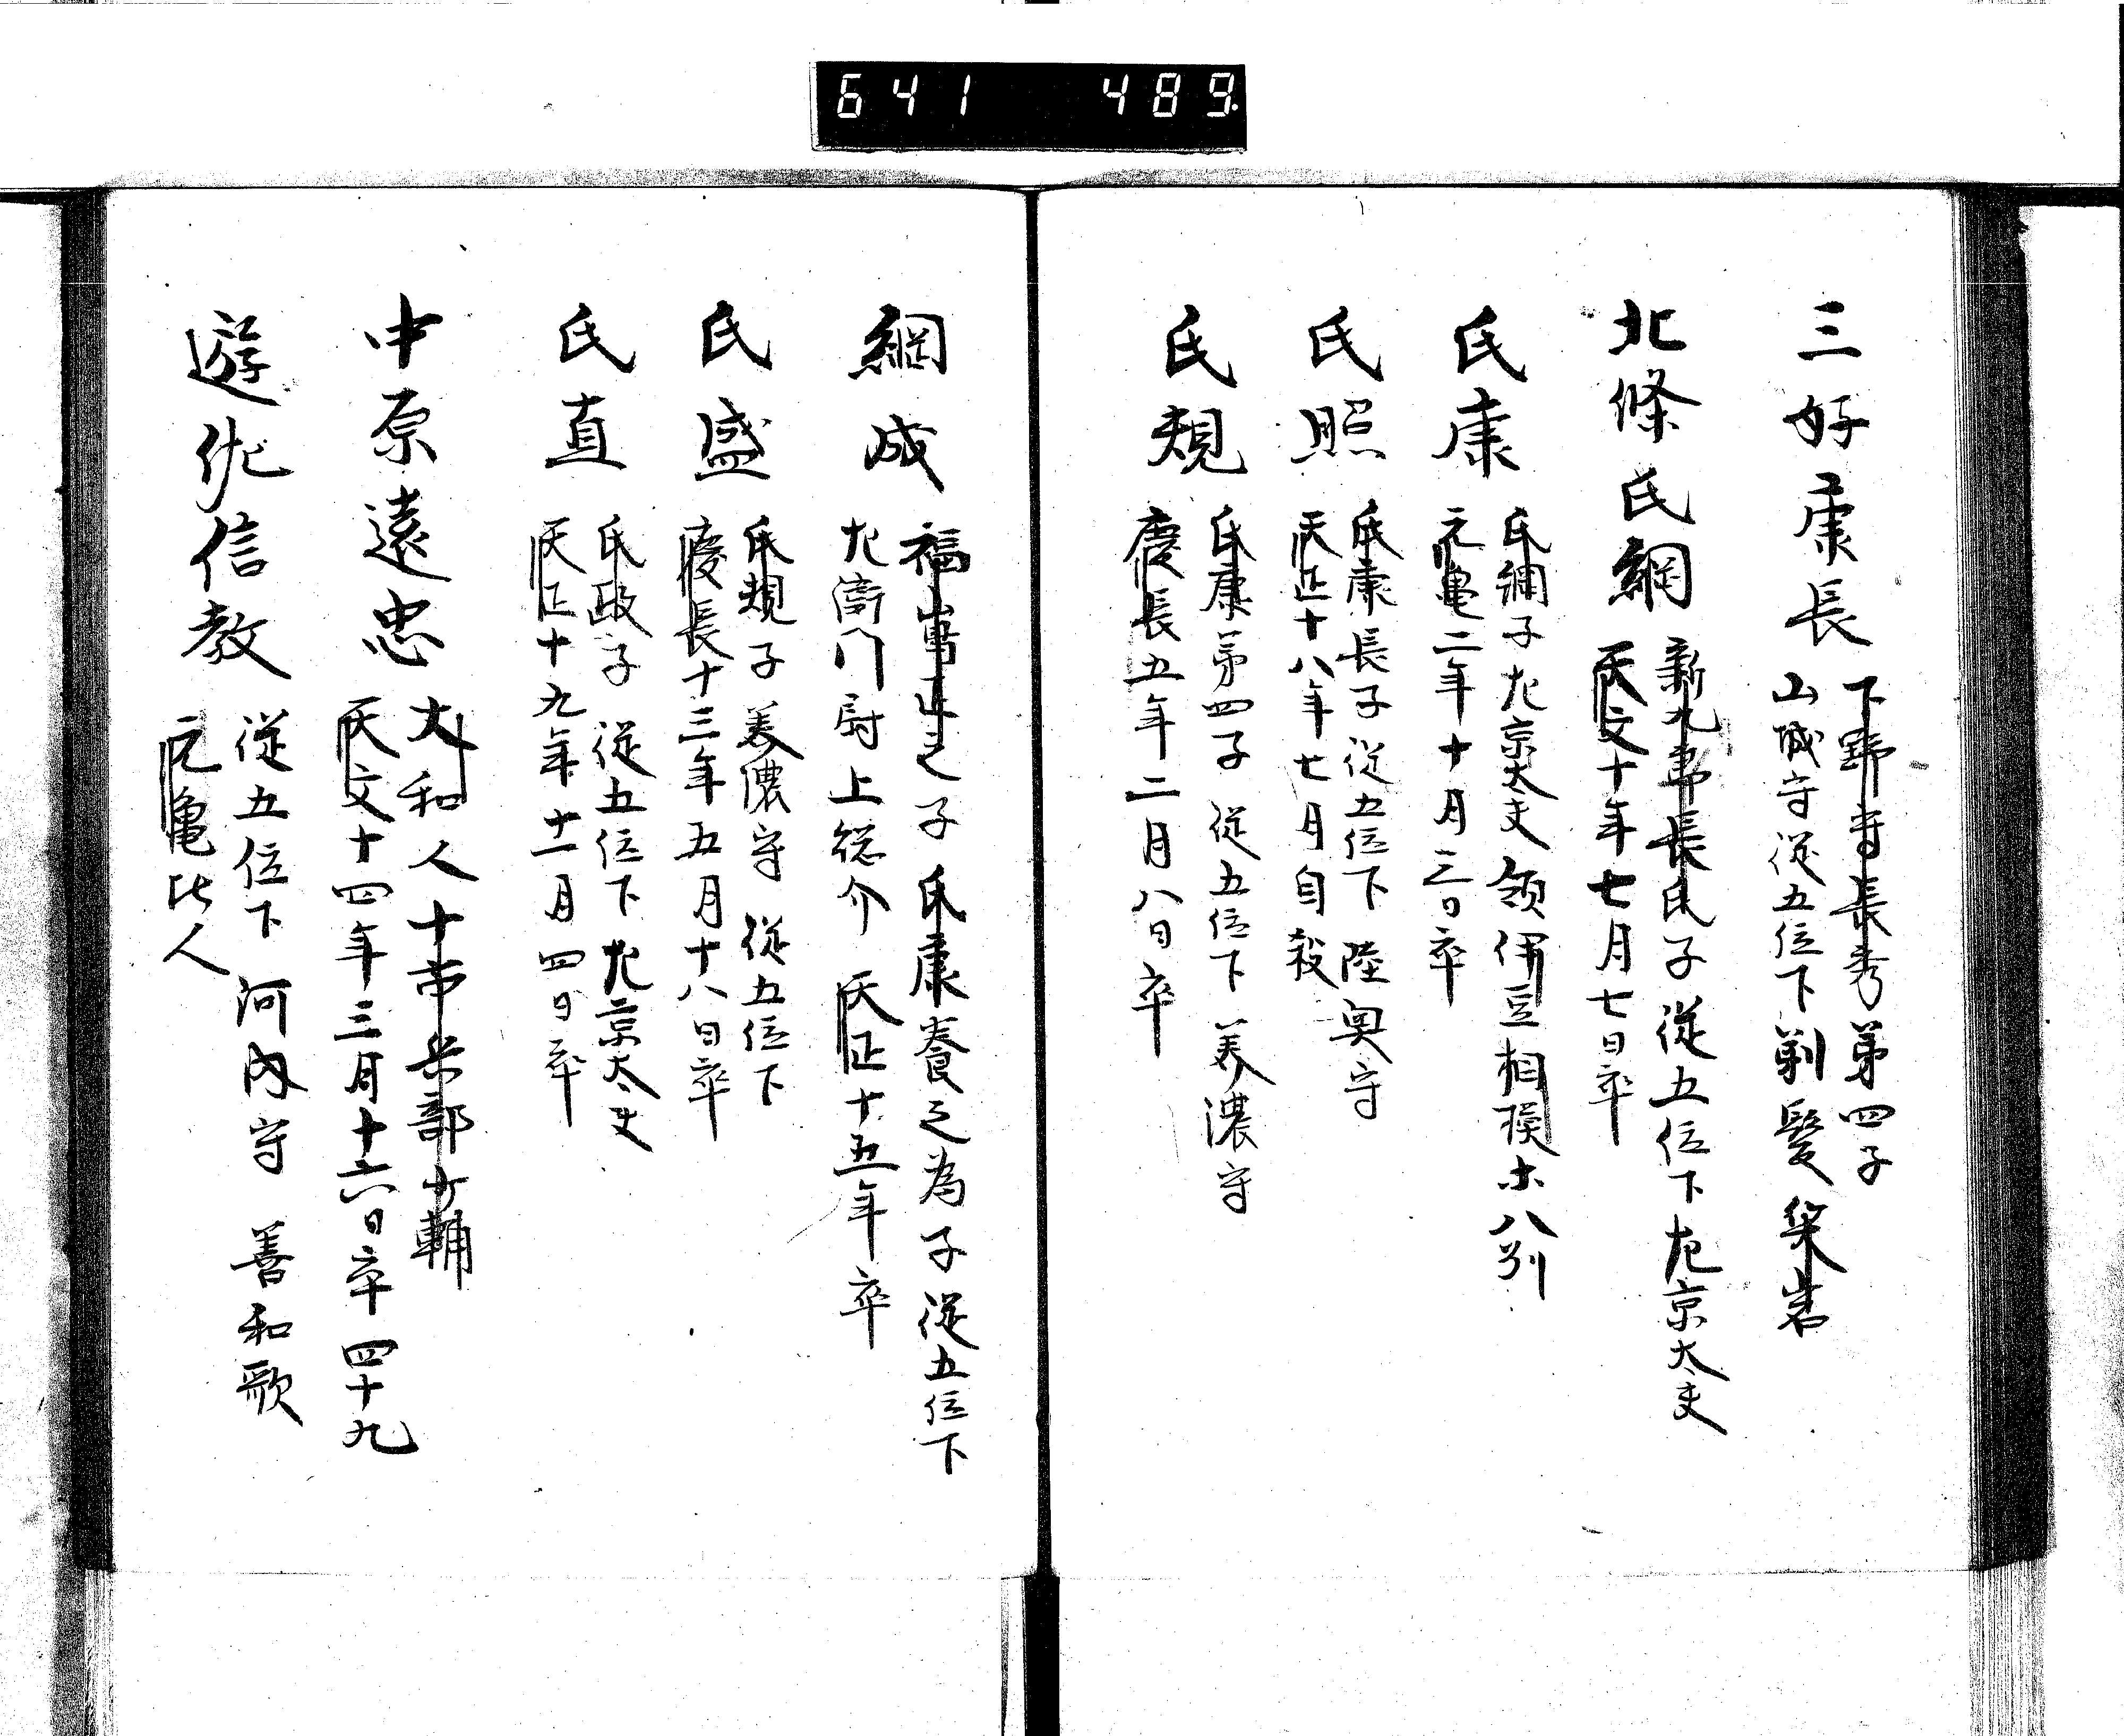 641 489.
三好康長
下野守長秀第四子
山城守従五位下剃髪笑岩
北條氏綱
新九郎長氏子従五位下左京大夫
天文十年七月七日卒
氏康
氏綱子左京大夫領伊豆相模等八列
元亀二年十月三日卒
氏照
氏康長子従五位下陸奥守
天正十八年七月自殺
氏規
氏康第四子従五位下美濃守
慶長五年二月八日卒
綱成
福嶋正之子氏康養之為子従五位下
左衛門尉上総介天正十五年卒
氏盛
氏規子美濃守従五位下
慶長十三年五月十八日卒
氏直
氏政子従五位下左京大夫
天正十九年十一月四日卒
中原遠忠
大和人十市兵部少輔
天文十四年三月十六日卒四十九
遊佐信教
従五位下河内守善和歌
元亀比人